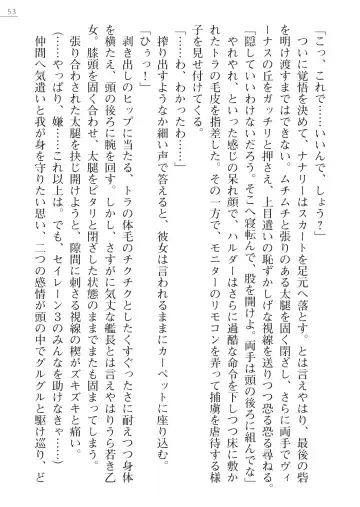 53
「こっ、これで……いいんで、しょう？」
ついに覚悟を決めて、ナナリーはスカートを足元へ落とす。とは言えやはり、最後の砦
を明け渡すまではできない。ムチムチと張りのある太腿を固く閉ざし、さらに両手でヴィ
ーナスの丘をガッチリと押さえ、上目遣いの恥ずかしげな視線を送りつつ恐る恐る尋ねる。
『隠していいわけないだろう。そこへ寝転んで、股を開けよ。両手は頭の後ろに組んでな』
やれやれ、といった感じの呆れ顔で、ハルダーはさらに過酷な命令を下しつつ床に敷か
れたトラの毛皮を指差した。その一方で、モニターのリモコンを弄って捕虜を虐待する様
子を見せ付けてくる。
「……わ、わかったわ……」
搾り出すようなか細い声で答えると、彼女は言われるままにカーペットに座り込む。
「ひぅっ！」
剥き出しのヒップに当たる、トラの体毛のチクチクとしたくすぐったさに耐えつつ身体
を横たえ、頭の後ろに腕を回す。しかし、さすがに気丈な艦長とは言えやはりうら若き乙
女。膝頭を固く合わせ、太腿をピタリと閉ざした状態のままでまたも固まってしまう。
張り合わされた太腿を抉じ開けようと、隙間に刺さる視線の楔がズキズキと痛い。
（……やっぱり、嫌……これ以上は。でも、セイレーン３のみんなを助けなきゃ……）
仲間へ気遣いと我が身を守りたい思い、二つの感情が頭の中でグルグルと駆け巡り、ど